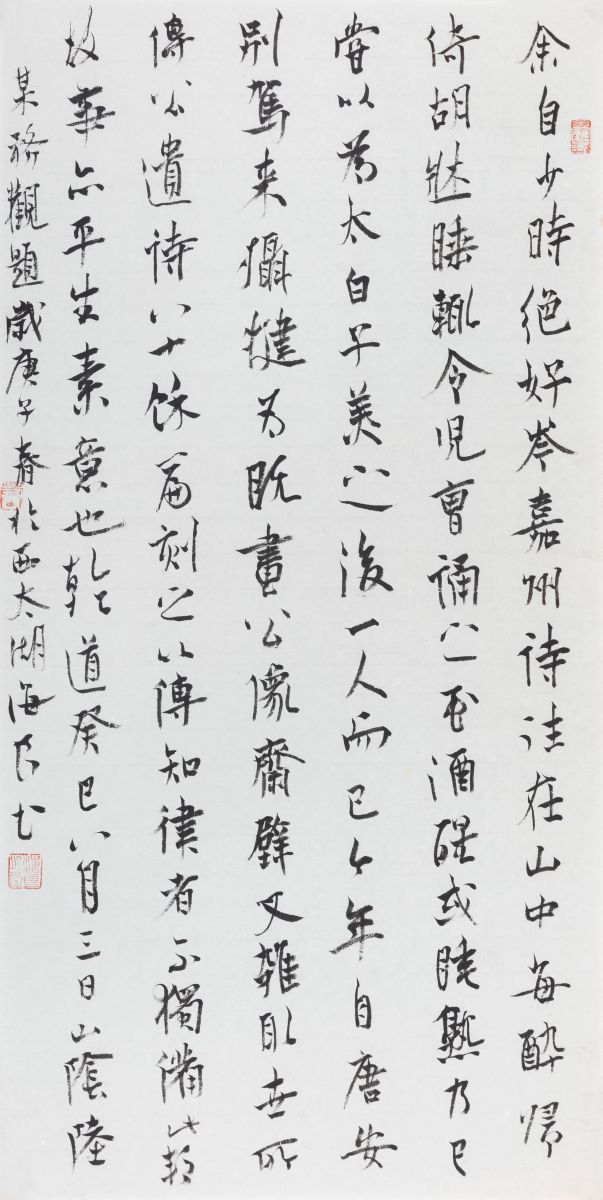 余自少時絕好岑嘉州詩往在山中每醉歸
倚胡牀睡輒令兒曹誦之至酒醒或睡熟乃已
嘗以為太白子美之後一人而已今年自唐安
別駕来攝犍為既畫公像齋壁又雜取世所
傳公遺詩八十餘篇刻之以傳知律者不獨備此邦
故事亦平生素意也乾道癸巳八月三日山陰陸
某務觀題歲庚子春於西太湖海书